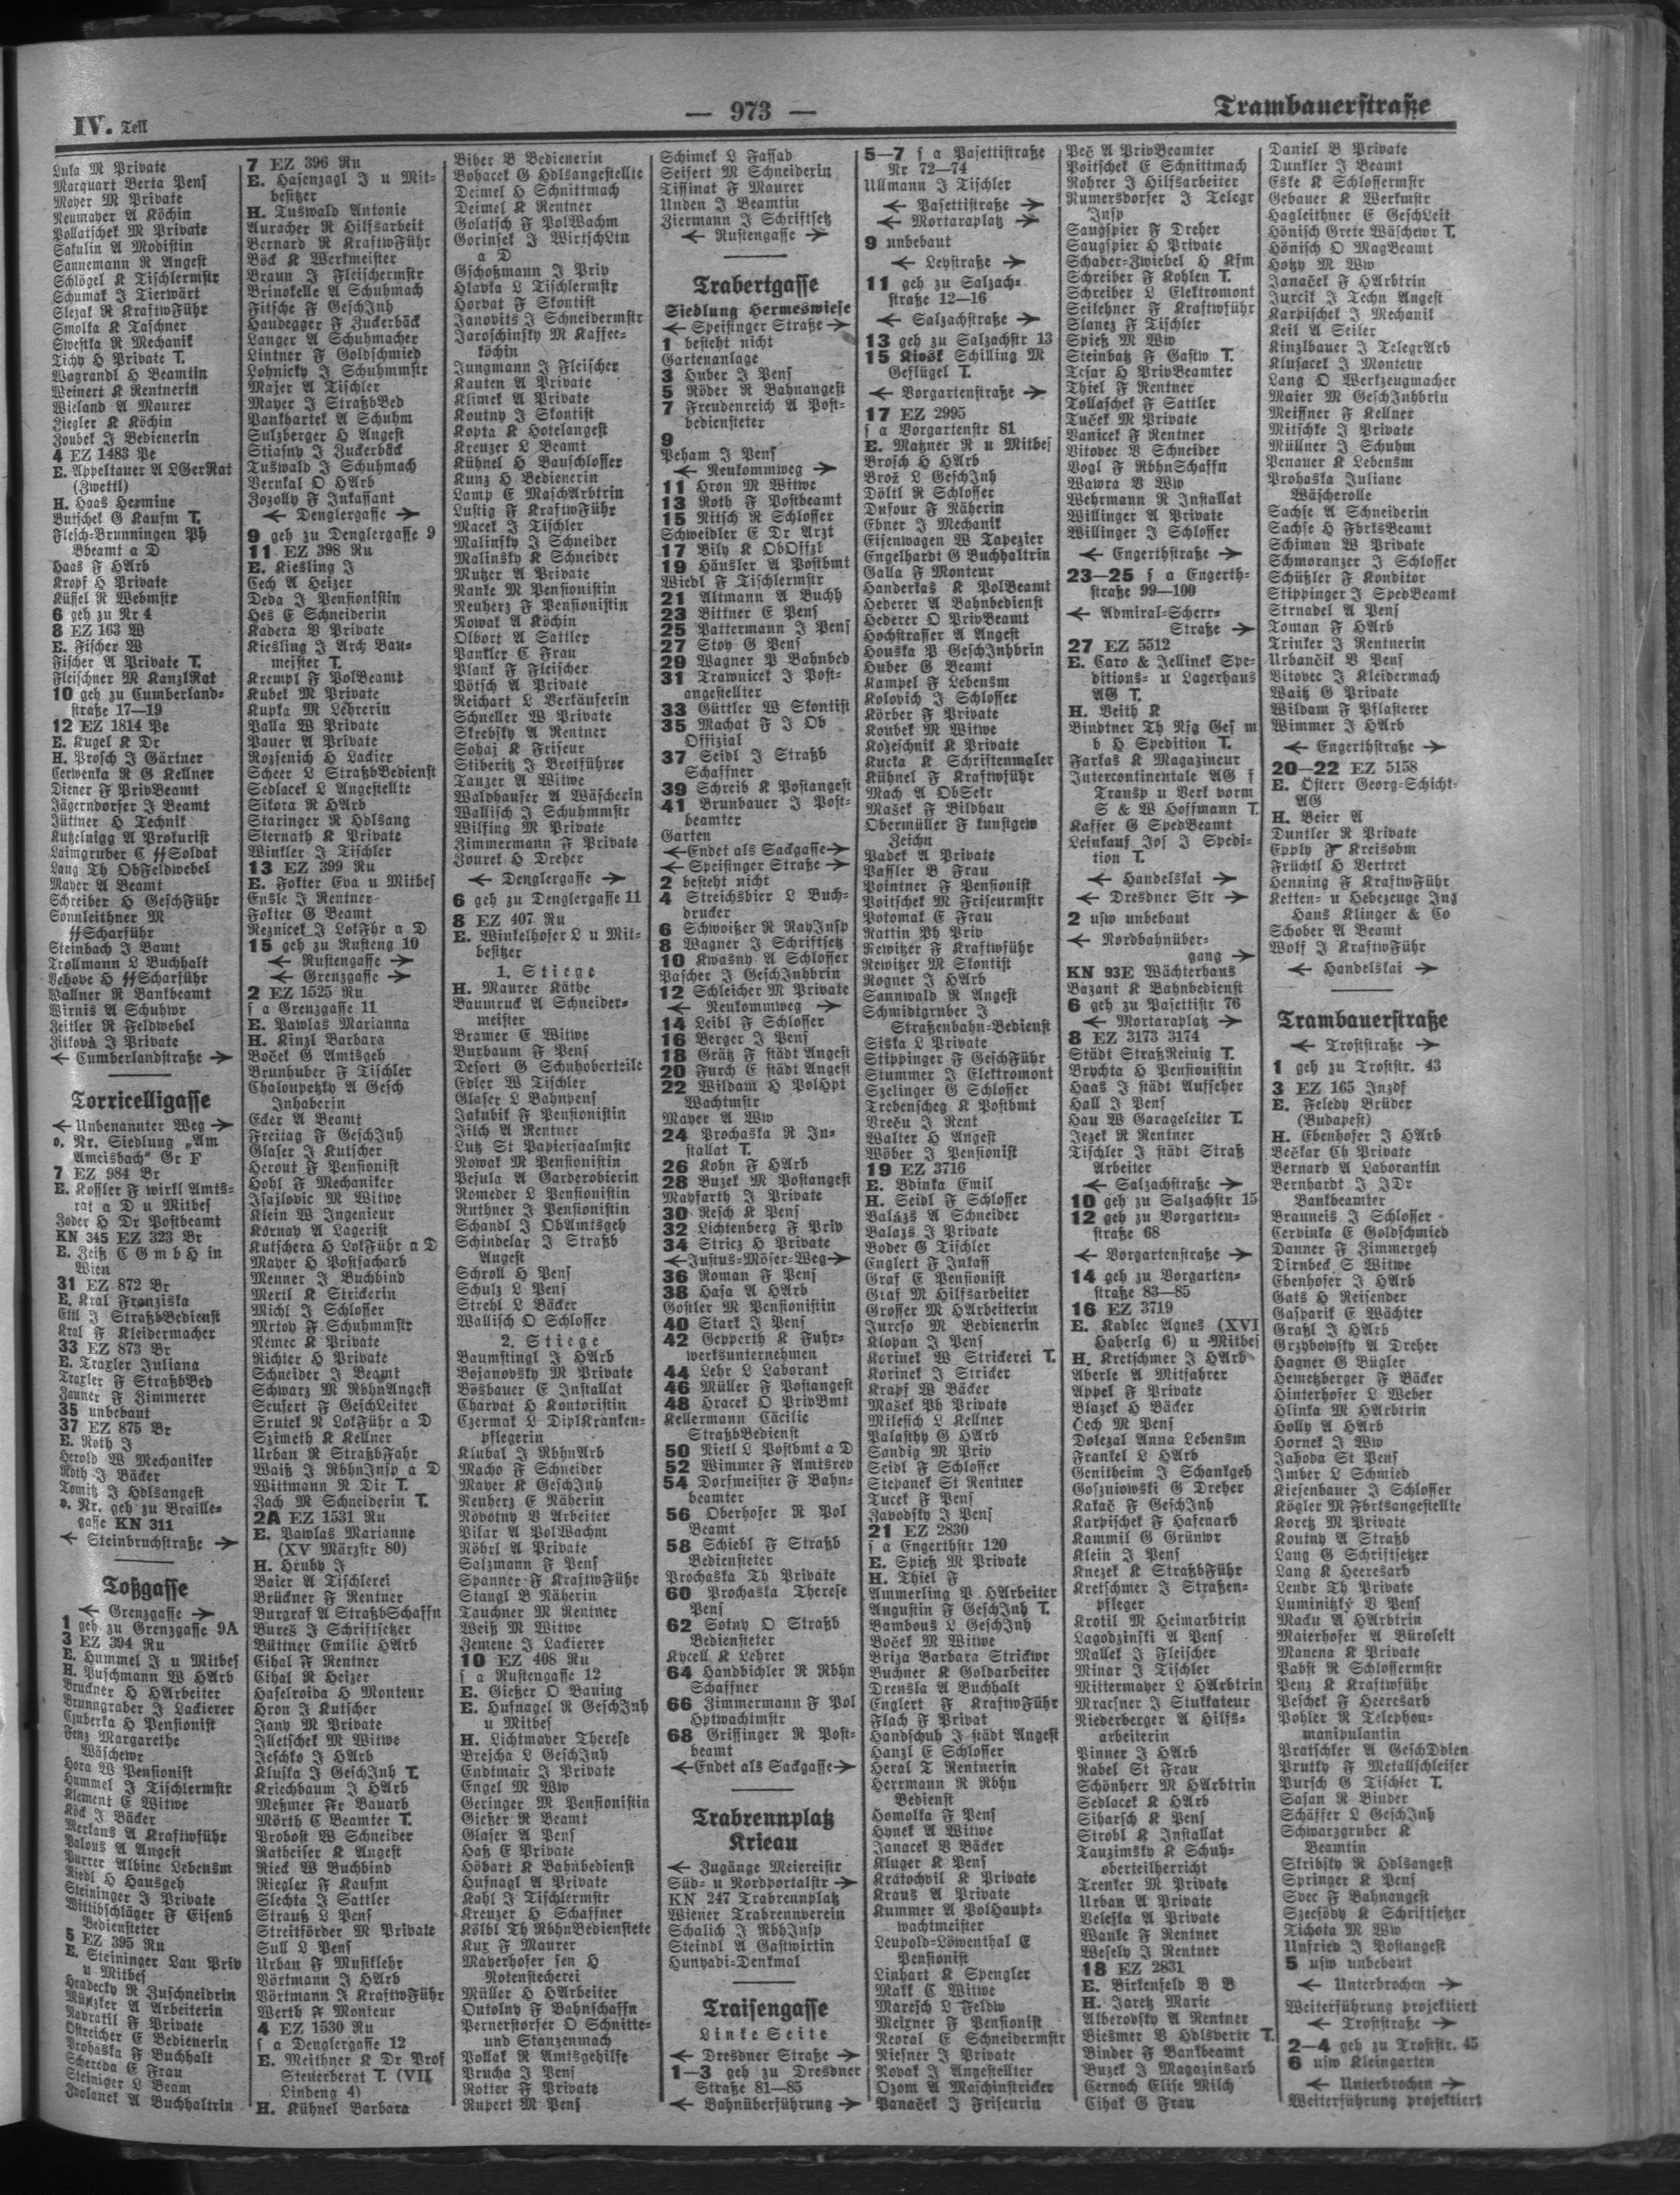 IV. Teil
— 973 —
Trambauerstraße
Luka M Private
Marquart Berta Pens
Mayer M Private
Neumayer A Köchin
Pollatschek M Private
Sakulin A Modistin
Sannemann R Angest
Schlögel K Tischlermstr
Schumak J Tierwärt
Slezak R KraftwFühr
Smolka K Taschner
Swestka R Mechanik
Tichy H Private T.
Wagrandl H Beamtin
Weinert K Rentnerin
Wieland A Maurer
Ziegler K Köchin
Zoubek J Bedienerin
4 EZ 1483 Pe
E. Appeltauer A LGerRat
(Zwettl)
H. Haas Hermine
Butschek G Kaufm T.
Flesch-Brunningen Ph
Bbeamt a D
Haas F HArb
Kropf H Private
Küssel R Webmstr
6 geh zu Nr 4
8 EZ 163 W
E. Fischer W
Fischer A Private T.
Fleischner M KanzlRat
10 geh zu Cumberland-
straße 17—19
12 EZ 1814 Pe
E. Kugel K Dr
H. Prosch J Gärtner
Cerwenka R G Kellner
Diener F PrivBeamt
Jägerndorfer J Beamt
Jüttner H Technik
Kutzelnigg A Prokurist
Laimgruber C SSSoldat
Lang Th ObFeldwebel
Mayer A Beamt
Schreiber H GeschFühr
Sonnleithner M
SSScharführ
Steinbach J Bamt
Trollmann L Buchhalt
Vehove H SSScharführ
Wallner R Bankbeamt
Wirnis A Schuhwr
Zeitler R Feldwebel
Zitkova J Private
← Cumberlandstraße →
Torricelligasse
← Unbenannter Weg →
o. Nr. Siedlung „Am
Ameisbach" Gr F
7 EZ 984 Br
E. Kossler F wirkl Amts-
rat a D u Mitbes
Zoder H Dr Postbeamt
KN 345 EZ 323 Br
E. Zeiß C G m b H in
Wien
31 EZ 872 Br
E. Kral Franziska
Ettl J StraßbBedienst
Kral F Kleidermacher
33 EZ 873 Br
E. Traxler Juliana
Traxler F StraßbBed
Zauner F Zimmerer
35 unbebaut
37 EZ 875 Br
E. Roth J
Herold W Mechaniker
Roth J Bäcker
Tomitz J Hdlsangest
o. Nr. geh zu Braille-
gasse KN 311
← Steinbruchstraße →
Toßgasse
← Grenzgasse →
1 geh zu Grenzgasse 9A
3 EZ 394 Ru
E. Hummel J u Mitbes
H. Puschmann W HArb
Bruckner H HArbeiter
Brunngraber J Lackierer
Czuberka H Pensionist
Fenz Margarethe
Wäschewr
Hora W Pensionist
Hummel J Tischlermstr
Klement E Witwe
Köck J Bäcker
Merlans A Kraftwführ
Palous A Angest
Purrer Albine Lebensm
Riedl H Hausgeh
Steininger J Private
Wittibschläger F Eisenb
Bediensteter
5 EZ 395 Ru
E. Steininger Lau Priv
u Mitbes
Hradecky R Zuschneidrin
Münzker A Arbeiterin
Navratil F Private
Ostreicher E Bedienerin
Prohaska F Buchhalt
Schereda E Frau
Steiniger L Beam
Zvolanek A Buchhaltrin
7 EZ 396 Ru
E. Hasenzagl J u Mit-
besitzer
H. Tuswald Antonie
Auracher R Hilfsarbeit
Bernard R KraftwFühr
Böck K Werkmeister
Braun J Fleischermstr
Brinokelle A Schuhmach
Fitsche F GeschInh
Haudegger F Zuckerbäck
Langer A Schuhmacher
Lintner F Goldschmied
Lohnicky J Schuhmmstr
Majer A Tischler
Mayer J StraßbBed
Pankhartek A Schuhm
Sulzberger H Angest
Stiasny J Zuckerbäck
Tuswald J Schuhmach
Vernkal O HArb
Zozolly F Inkassant
← Denglergasse →
9 geh zu Denglergasse 9
11 EZ 398 Ru
E. Kiesling J
Cech A Heizer
Deda J Pensionistin
Hes E Schneiderin
Kadera V Private
Kiesling J Arch Bau-
meister T.
Krempl F PolBeamt
Kubek M Private
Kupka M Lehrerin
Palla W Private
Pauer A Private
Rozsenich H Lackier
Scheer L StraßbBedienst
Sedlacek L Angestellte
Sikora R HArb
Staringer R Hdlsang
Sternath K Private
Winkler J Tischler
13 EZ 399 Ru
E. Fokter Eva u Mitbes
Ensle J Rentner
Fokter G Beamt
Reznicek J LokFhr a D
15 geh zu Rusteng 10
← Rustengasse →
← Grenzgasse →
2 EZ 1525 Ru
s a Grenzgasse 11
E. Pawlas Marianna
H. Kinzl Barbara
Boček G Amtsgeh
Brunhuber F Tischler
Chaloupetzky A Gesch
Inhaberin
Ecker A Beamt
Freitag F GeschInh
Glaser J Kutscher
Herout F Pensionist
Hohl F Mechaniker
Isajlovic M Witwe
Klein W Ingenieur
Kornay A Lagerist
Kutschera H LokFühr a D
Mayer H Postfacharb
Menner J Buchbind
Mertl K Strickerin
Michl J Schlosser
Mrtov F Schuhmmstr
Nemec K Private
Richter H Private
Schneider J Beamt
Schwarz M RbhnAngest
Seufert F GeschLeiter
Srutek R LokFühr a D
Szimeth K Kellner
Urban R StraßbFahr
Waiß J RbhnInsp a D
Wittmann R Dir T.
Zach M Schneiderin T.
2A EZ 1531 Ru
E. Pawlas Marianne
(XV Märzstr 80)
H. Hruby J
Baier A Tischlerei
Brückner F Rentner
Burgraf A StraßbSchaffn
Bures J Schriftsetzer
Büttner Emilie HArb
Cihal F Rentner
Cihal R Heizer
Haselroida H Monteur
Hron J Kutscher
Jany M Private
Illetschek M Witwe
Jeschko J HArb
Kluska J GeschInh T.
Kriechbaum J HArb
Meßmer Fr Bauarb
Mörth C Beamter T.
Probost W Schneider
Ratheiser K Angest
Rieck W Buchbind
Riegler F Kaufm
Slechta J Sattler
Strauß L Pens
Streitförder M Private
Sull L Pens
Urban F Musiklehr
Vörtmann J HArb
Vörtmann J KraftwFühr
Werth F Monteur
4 EZ 1530 Ru
s a Denglergasse 12
E. Meithner K Dr Prof
Steuerberat T. (VII
Lindeng 4)
H. Kühnel Barbara
Biber B Bedienerin
Bohacek G Hdlsangestellte
Deimel H Schnittmach
Deimel K Rentner
Golatsch F PolWachm
Gorinsek J WirtschLtn
a D
Gschoßmann J Priv
Hlavka L Tischlermstr
Horvat F Skontist
Janovits J Schneidermstr
Jaroschinsky M Kaffee-
köchin
Jungmann J Fleischer
Kauten A Private
Klimek A Private
Koutny J Skontist
Kopta K Hotelangest
Kreuzer L Beamt
Kühnel H Bauschlosser
Kunz H Bedienerin
Lamp E MaschArbtrin
Lustig F KraftwFühr
Macek J Tischler
Malinsky J Schneider
Malinsky K Schneider
Mutzer A Private
Nanke M Pensionistin
Neuherz F Pensionistin
Nowak A Köchin
Olbort A Sattler
Pankler C Frau
Plank F Fleischer
Pötsch A Private
Reichart L Verkäuferin
Schneller W Private
Skrebsky A Rentner
Sohaj K Friseur
Stiberitz J Brotführer
Tanzer A Witwe
Waldhauser A Wäscherin
Wallisch J Schuhmmstr
Wilfing M Private
Zimmermann F Private
Zourek H Dreher
← Denglergasse →
6 geh zu Denglergasse 11
8 EZ 407 Ru
E. Winkelhofer L u Mit-
besitzer
1. Stiege
H. Maurer Käthe
Baumruck A Schneider-
meister
Bramer E Witwe
Burbaum F Pens
Desort G Schuhoberteile
Edler W Tischler
Glaser L Bahnpens
Jakubik F Pensionistin
Jilch A Rentner
Lutz St Papiersaalmstr
Nowak M Pensionistin
Pesula A Garderobierin
Romeder L Pensionistin
Ruthner J Pensionistin
Schandl J ObAmtsgeh
Schindelar J Straßb
Angest
Schroll H Pens
Schulz L Pens
Strehl L Bäcker
Wallisch O Schlosser
2. Stiege
Baumstingl J HArb
Bojanovsky M Private
Bösbauer E Installat
Charvat H Kontoristin
Czermak L DiplKranken-
pflegerin
Klubal J RbhnArb
Macho F Schneider
Mayer K GeschInh
Neuherz E Näherin
Novotny V Arbeiter
Pilar A PolWachm
Röhrl A Private
Salzmann F Pens
Spanner F KraftwFühr
Stangl B Näherin
Tauchner M Rentner
Weiß M Witwe
Zemene J Lackierer
10 EZ 408 Ru
s a Rustengasse 12
E. Gießer O Bauing
E. Hufnagel R GeschInh
u Mitbes
H. Lichtmayer Therese
Brejcha L GeschInh
Endtmair J Private
Engel M Ww
Geringer M Pensionistin
Gießer R Beamt
Glaser A Pens
Haß E Private
Höbart K Bahnbedienst
Hufnagl A Private
Kahl J Tischlermstr
Kreuzer H Schaffner
Kölbl Th RbhnBedienstete
Kux F Maurer
Mayerhofer sen H
Notenstecherei
Müller H HArbeiter
Outolny F Bahnschaffn
Pernerstorfer O Schnitte-
und Stanzenmach
Pollak R Amtsgehilfe
Prucha J Pens
Rotter F Private
Rupert M Pens
Schimek L Fassad
Seifert M Schneiderin
Tiffinat F Maurer
Unden J Beamtin
Ziermann J Schriftsetz
← Rustengasse →
Trabertgasse
Siedlung Hermeswiese
← Speisinger Straße →
1 besteht nicht
Gartenanlage
3 Huber J Pens
5 Röder R Bahnangest
7 Freudenreich A Post-
bediensteter
9
Peham J Pens
← Neukommweg →
11 Hron M Witwe
13 Roth F Postbeamt
15 Nitsch R Schlosser
Schweidler E Dr Arzt
17 Bily K ObOffzl
19 Häusler A Postbmt
Wiedl F Tischlermstr
21 Altmann A Buchh
23 Bittner E Pens
25 Pattermann J Pens
27 Stoy G Pens
29 Wagner P Bahnbed
31 Trawnicek J Post-
angestellter
33 Güttler W Skontist
35 Machat F J Ob
Offizial
37 Seidl J Straßb
Schaffner
39 Schreib K Postangest
41 Brunbauer J Post-
beamter
Garten
← Endet als Sackgasse →
← Speisinger Straße →
2 besteht nicht
4 Streichsbier L Buch-
drucker
6 Schwoißer R RayInsp
8 Wagner J Schriftsetz
10 Kwasny A Schlosser
Pascher J GeschInhbrin
12 Schleicher M Private
← Neukommweg →
14 Leibl F Schlosser
16 Berger J Pens
18 Grätz F städt Angest
20 Furch E städt Angest
22 Wildam H PolHpt
Wachtmstr
Mayer A Ww
24 Prochaska R In-
stallat T.
26 Kohn F HArb
28 Buzek M Postangest
Mayfarth J Private
30 Resch K Pens
32 Lichtenberg F Priv
34 Stricz H Private
← Justus-Möser-Weg →
36 Roman F Pens
38 Hasa A HArb
Gostler M Pensionistin
40 Stark J Pens
42 Gepperth K Fuhr-
werksunternehmen
44 Lehr L Laborant
46 Müller F Postangest
48 Hracek O PrivBmt
Kellermann Cäcilie
StraßbBedienst
50 Nietl L Postbmt a D
52 Wimmer F Amtsrev
54 Dorfmeister F Bahn-
beamter
56 Oberhofer R Pol
Beamt
58 Schiebl F Straßb
Bediensteter
Prochaska Th Private
60 Prochaska Therese
Pens
62 Sotny O Straßb
Bediensteter
Kycell K Lehrer
64 Handbichler R Rbhn
Schaffner
66 Zimmermann F Pol
Hptwachtmstr
68 Griffinger R Post-
beamt
← Endet als Sackgasse →
Trabrennplatz
Krieau
← Zugänge Meiereistr
Süd- u Nordportalstr →
KN 247 Trabrennplatz
Wiener Trabrennverein
Schalich J RbhInsp
Steindl A Gastwirtin
Hunyadi-Denkmal
Traisengasse
Linke Seite
← Dresdner Straße →
1—3 geh zu Dresdner
Straße 81—85
← Bahnüberführung →
5—7 s a Pasettistraße
Nr 72—74
Ullmann J Tischler
← Pasettistraße →
← Mortaraplatz →
9 unbebaut
← Leystraße →
11 geh zu Salzach-
straße 12—16
← Salzachstraße →
13 geh zu Salzachstr 13
15 Kiosk Schilling M
Geflügel T.
← Vorgartenstraße →
17 EZ 2995
s a Vorgartenstr 81
E. Matzner R u Mitbes
Brosch H HArb
Brož L GeschInh
Döltl R Schlosser
Dufour F Näherin
Ebner J Mechanik
Eisenwagen W Tapezier
Engelhardt G Buchhaltrin
Galla F Monteur
Handerkas K PolBeamt
Hederer A Bahnbedienst
Hederer O PrivBeamt
Hochstrasser A Angest
Houska P GeschInhbrin
Huber G Beamt
Kampel F Lebensm
Kolovich J Schlosser
Körber F Private
Koubek M Witwe
Kozeschnik K Private
Kucka K Schriftenmaler
Kühnel F Kraftwführ
Mach A ObSekr
Mašek F Bildhau
Obermüller F kunstgew
Zeichn
Padek A Private
Passler B Frau
Pointner F Pensionist
Poitschek M Friseurmstr
Potomak E Frau
Rattin Ph Priv
Rewitzer F Kraftwführ
Rewitzer M Skontist
Rogner J HArb
Sannwald R Angest
Schmidtgruber J
Straßenbahn-Bedienst
Siska L Private
Stippinger F GeschFühr
Stummer J Elektromont
Szelinger G Schlosser
Trebenscheg K Postbmt
Vreču J Rent
Walter H Angest
Wöber J Pensionist
19 EZ 3716
E. Bdinka Emil
H. Seidl F Schlosser
Balázs A Schneider
Balazs J Private
Boder G Tischler
Englert F Inkass
Graf E Pensionist
Graf M Hilfsarbeiter
Grosser M HArbeiterin
Jurcso M Bedienerin
Klopan J Pens
Korinek W Strickerei T.
Korinek J Stricker
Krapf W Bäcker
Mašek Ph Private
Milesich L Kellner
Palasthy G HArb
Sandig M Priv
Seidl F Schlosser
Stepanek St Rentner
Tucek F Pens
Zavodsky J Pens
21 EZ 2830
s a Engerthstr 120
E. Spieß M Private
H. Thiel F
Ammerling P HArbeiter
Augustin F GeschInh T.
Bambous L GeschInh
Boček M Witwe
Briza Barbara Strickwr
Buchner K Goldarbeiter
Drensla A Buchhalt
Englert F KraftwFühr
Flach F Privat
Handschuh J städt Angest
Hanzl E Schlosser
Heral T Rentnerin
Herrmann R Rbhn
Bedienst
Homolka F Pens
Hynek A Witwe
Janacek V Bäcker
Kluger K Pens
Kratochvil K Private
Kraus A Private
Kummer A PolHaupt-
wachtmeister
Leupold-Löwenthal E
Pensionist
Linhart K Spengler
Matt C Witwe
Maresch L Feldw
Meixner F Pensionist
Neoral E Schneidermstr
Niesner J Private
Novak J Angestellter
Ozom A Maschinstricker
Panaček J Friseurin
Peč A PrivBeamter
Poitschek E Schnittmach
Rohrer J Hilfsarbeiter
Rumersdorfer J Telegr
Insp
Saugspier F Dreher
Saugspier H Private
Schader-Zwiebel H Kfm
Schreiber F Kohlen T.
Schreiber L Elektromont
Seilehner F Kraftwführ
Slanez F Tischler
Spieß M Ww
Steinbatz F Gastw T.
Tesar H PrivBeamter
Thiel F Rentner
Tollaschek F Sattler
Tuček M Private
Vanicek F Rentner
Vitovec V Schneider
Vogl F RbhnSchaffn
Wawra V Ww
Wehrmann R Installat
Willinger A Private
Willinger J Schlosser
← Engerthstraße →
23—25 s a Engerth-
straße 99—100
← Admiral-Scheer-
Straße →
27 EZ 5512
E. Caro & Jellinek Spe-
ditions- u Lagerhaus
AG T.
H. Veith K
Bindtner Th Nfg Ges m
b H Spedition T.
Farkas K Magazineur
Intercontinentale AG f
Transp u Verk vorm
S & W Hoffmann T.
Kaffer G SpedBeamt
Leinkauf Jos J Spedi-
tion T.
← Handelskai →
← Dresdner Str →
2 usw unbebaut
← Nordbahnüber-
gang →
KN 93E Wächterhaus
Bazant K Bahnbedienst
6 geh zu Pasettistr 76
← Mortaraplatz →
8 EZ 3173 3174
Städt StraßReinig T.
Brychta H Pensionistin
Haas J städt Aufseher
Hall J Pens
Hau W Garageleiter T.
Jezek R Rentner
Tischler J städt Straß
Arbeiter
← Salzachstraße →
10 geh zu Salzachstr 15
12 geh zu Vorgarten-
straße 68
← Vorgartenstraße →
14 geh zu Vorgarten-
straße 83—85
16 EZ 3719
E. Kadlec Agnes (XVI
Haberlg 6) u Mitbes
H. Kretschmer J HArb
Aberle A Mitfahrer
Appel F Private
Blazek H Bäcker
Čech M Pens
Dolezal Anna Lebensm
Frankel L HArb
Genitheim J Schankgeh
Goszniowski G Dreher
Kakač F GeschInh
Karpischek F Hafenarb
Kammil G Grünwr
Klein J Pens
Knezek K StraßbFühr
Kretschmer J Straßen-
pfleger
Krotil M Heimarbtrin
Lagodzinski A Pens
Mallek J Fleischer
Minar J Tischler
Mittermayer L HArbtrin
Mracsner J Stukkateur
Niederberger A Hilfs-
arbeiterin
Pinner J HArb
Rabel St Frau
Schönherr M HArbtrin
Sedlacek K HArb
Siharsch K Pens
Strobl K Installat
Tauzimsky K Schuh-
oberteilherricht
Trenker M Private
Urban A Private
Veleska A Private
Wanke F Rentner
Wesely J Rentner
18 EZ 2831
E. Birkenfeld B B
H. Jaretz Marie
Alberovsky A Rentner
Biesmer B Hdlsvertr T.
Binder F Bankbeamt
Buzek J Magazinsarb
Cernoch Elise Milch
Cihak G Frau
Daniel B Private
Dunkler J Beamt
Eske K Schlossermstr
Gebauer K Werkmstr
Hagleithner E GeschLeit
Hönisch Grete Wäschewr T.
Hönisch O MagBeamt
Hotzy M Ww
Janaček F HArbtrin
Jurcik J Techn Angest
Karpischek J Mechanik
Keil A Seiler
Kinzlbauer J TelegrArb
Klusacek J Monteur
Lang O Werkzeugmacher
Maier M GeschInhbrin
Meissner F Kellner
Mitschke J Private
Müllner J Schuhm
Penauer K Lebensm
Prohaska Juliane
Wäscherolle
Sachse A Schneiderin
Sachse H FbrksBeamt
Schiman W Private
Schmoranzer J Schlosser
Schüßler F Konditor
Stippinger J SpedBeamt
Strnadel A Pens
Toman F HArb
Trinker J Rentnerin
Urbančik B Pens
Vitovec J Kleidermach
Waitz G Private
Wildam F Pflasterer
Wimmer J HArb
← Engerthstraße →
20—22 EZ 5158
E. Österr Georg-Schicht-
AG
H. Beier A
Duntler R Private
Epply F Kreisobm
Früchtl H Vertret
Henning F KraftwFühr
Ketten- u Hebezeuge Inz
Hans Klinger & Co
Schober A Beamt
Wolf J KraftwFühr
← Handelskai →
Trambauerstraße
← Troststraße →
1 geh zu Troststr. 43
3 EZ 165 Inzdf
E. Feledy Brüder
(Budapest)
H. Ebenhofer J HArb
Bečkar Ch Private
Bernard A Laborantin
Bernhardt J JDr
Bankbeamter
Brauneis J Schlosser
Cervinka E Goldschmied
Danner F Zimmergeh
Dirnbeck S Witwe
Ebenhofer J HArb
Gats H Reisender
Gasparik E Wächter
Graßl J HArb
Grzybowsky A Dreher
Hagner G Bügler
Hemetzberger F Bäcker
Hinterhofer L Weber
Hlinka M HArbtrin
Holly A HArb
Hornek J Ww
Jahoda St Pens
Imber L Schmied
Kiesenbauer J Schlosser
Kögler M Fbrksangestellte
Koretz M Private
Koutny A Straßb
Lang G Schriftsetzer
Lang K Heeresarb
Lendr Th Private
Luminitzky V Pens
Macku A HArbtrin
Maierhofer A Büroleit
Manena K Private
Pabst R Schlossermstr
Penz K Kraftwführ
Peschek F Heeresarb
Pohler R Telephon-
manipulantin
Pratschker A GeschDbien
Prutky F Metallschleifer
Pursch G Tischler T.
Sasan R Binder
Schäffer L GeschInh
Schwarzgruber K
Beamtin
Skribsky R Hdlsangest
Springer K Pens
Svec F Bahnangest
Szecsödy K Schriftsetzer
Tichota M Ww
Unfried J Postangest
5 usw unbebaut
← Unterbrochen →
Weiterführung projektiert
← Troststraße →
2—4 geh zu Troststr. 45
6 usw Kleingarten
← Unterbrochen →
Weiterführung projektiert